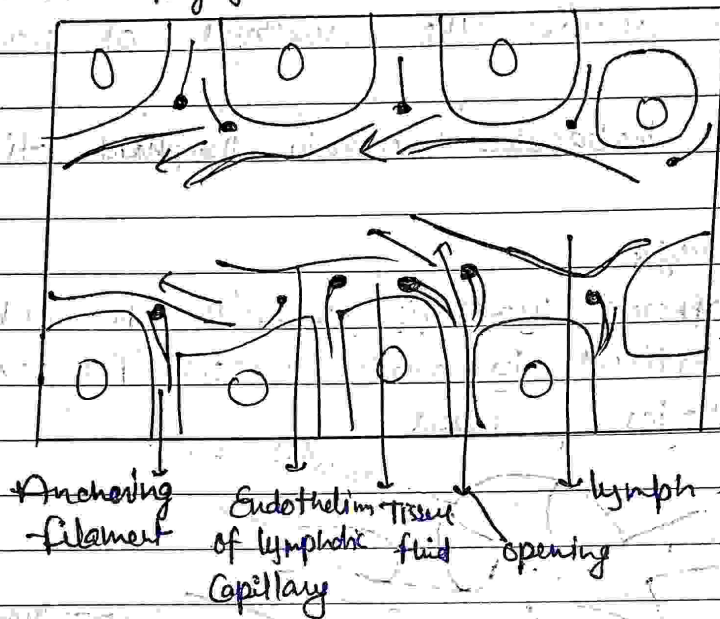 Anchoring
filament
Endothelim
of lymphatic
Capillary
Tissue
fluid
opening
lymph